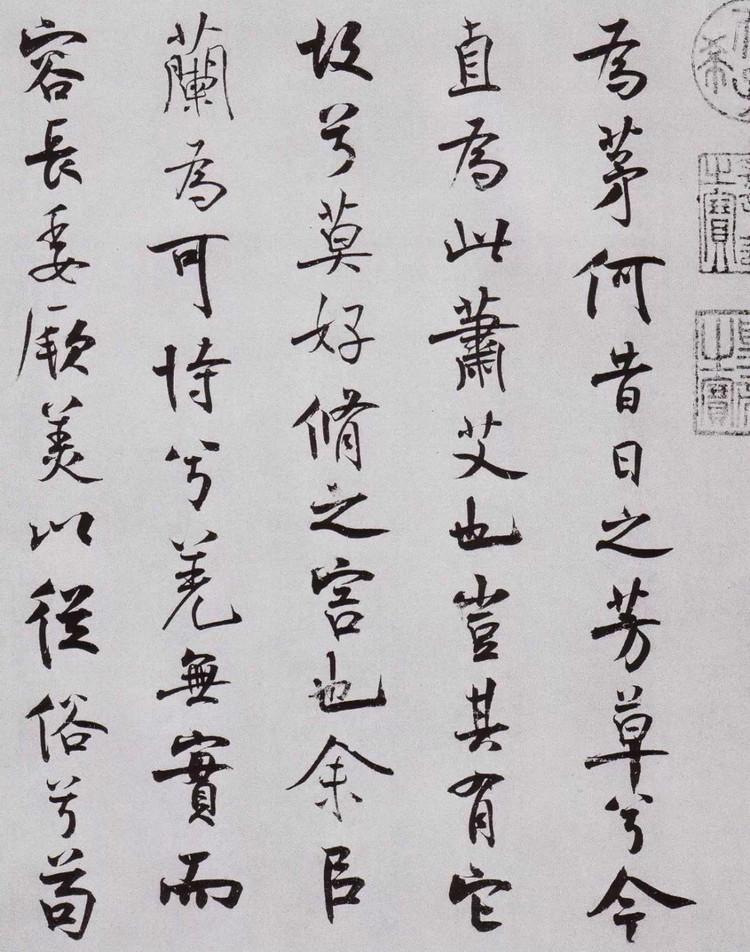 為茅何昔日之芳草兮今
直為此蕭艾也豈其有它
故兮莫好脩之害也余以
蘭為可恃兮羌無實而
容長委厥美以從俗兮苟
之寶